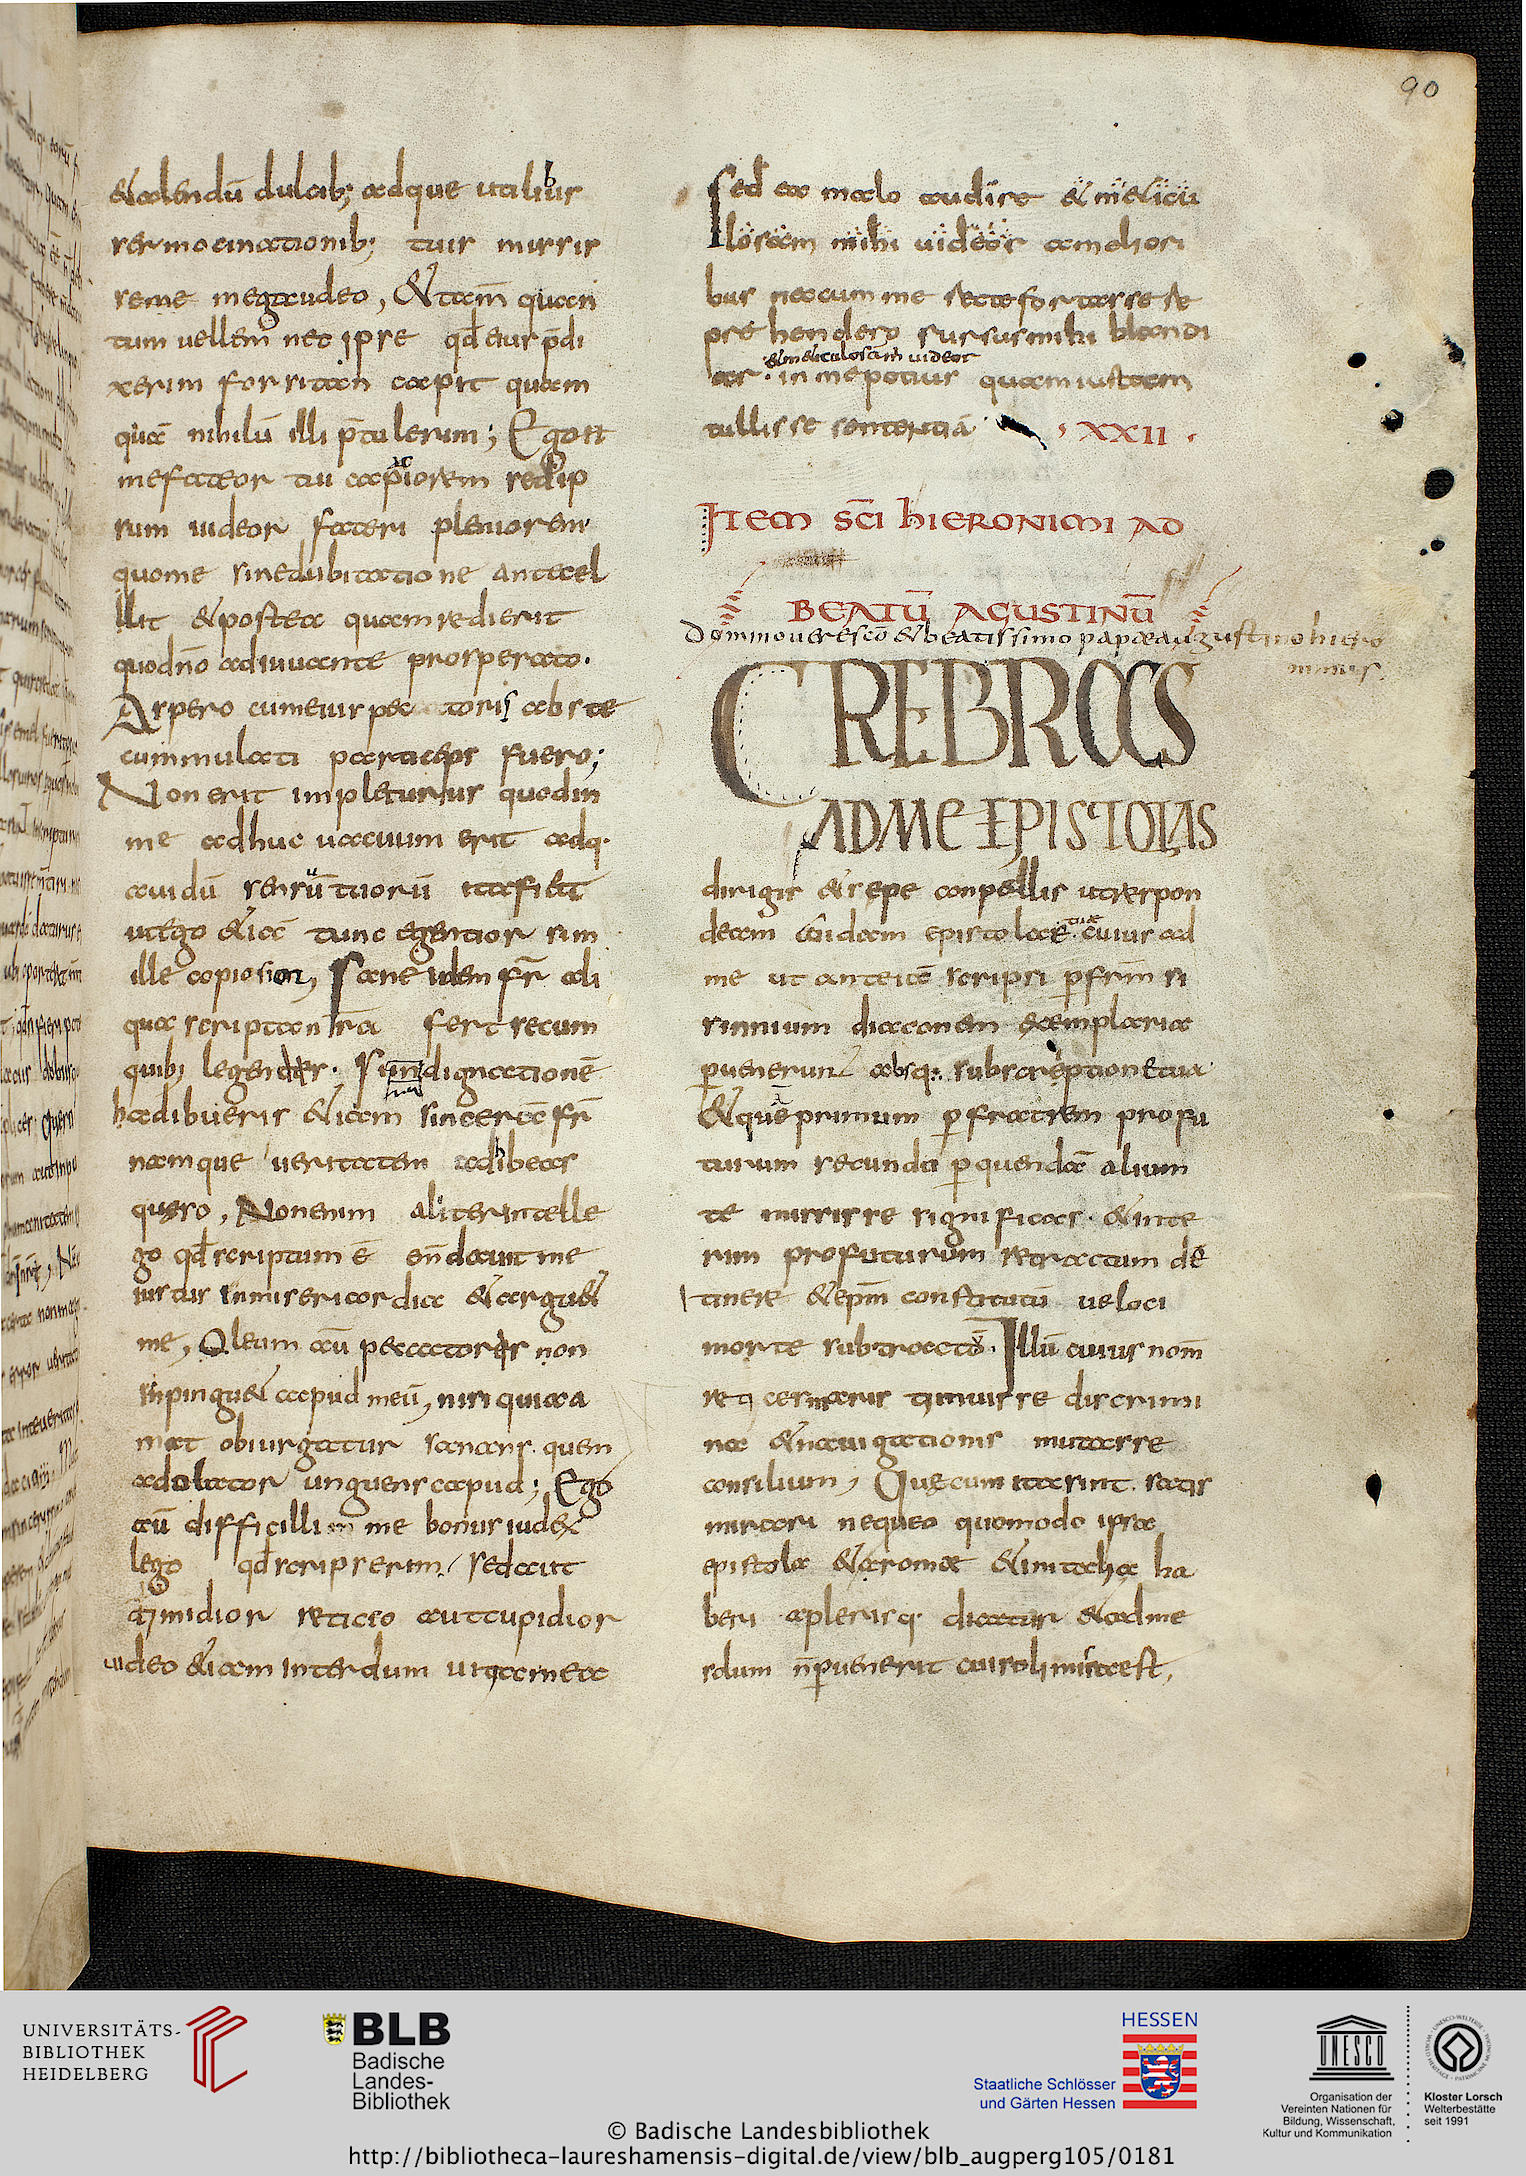 90
&colendū dulcib; adque utalibus
sermocinationib; tuis missis
seme megaudeo, &tam̄ quan
tum vellem nec ipse qđ eius p̄di
xerim forsitan caepit quam
quā nihilū illi p̄tulerim; Ego &
mefateor tu capaciorem sed ip
sum videor fateri pleniorem
quome sinedubitatione antecel
llit &postea quamredierit
quodn̄o adiuvante prosperato.
Aspero cumeius pectoris abste
cummulati particeps fuero;
Non erit impleturus quodin
me adhuc vacuum erit adq·
avidū sensuū tuorū itafi&
utego &iā tunc egentior sim
ille copiosior, Sane idem fr̄ ali
qua scripta nr̄a fert secum
quib; legendis· si indignationē
hadibueris &iam sincerā fr̄
namque veritatem adhibeas
quero, Nonenim aliterintelle
go qđ scriptum ē en̄dauit me
iustus inmisericordia &argu&
me, Oleum aū peccatoris non
inpingu& capud meū, nisi quia a
mat obiurgatur sanans quem
adolator unguens capud; Ego
aū difficillim me bonus iudex
lego qđ scripserim, sed aut
timidior reticeo aut cupidior
video &iam interdum vitia mea
Sed ea malo audire &melicu
losam mihi videor ameliori
bus necum me recte fortasse re
prehendero rursus mihi blandi
&meliculosam videor
ar· in me potius quam iustam
tullisse sententiā · XXII ·
ITEM SC̄I HIERONIMI AD
BEATŪ AGUSTINŪ
Domino vere sc̄o &beatissimo papae augustino hiero
nimus
CREBRAS
AD ME EPISTOLAS
dirigis &sepe conpellis ut respon
deam cuidam epistolae tuae cuius ad
me ut ante iā scripsi p fr̄m si
sinnium diaconem exemplaria
puenerunt absq; subscriptione tua
&quā primum p fratrem profu
turum secundā p quendā alium
te misisse significas· &inte
rim profuturum retractum de
tinere &ep̄m constitutū veloci
morte subtractū· Illū cuius nom̄
reticeris timuisse discrimi
na &navigationis mutasse
consilium, Que cum ita sint satis
mirari nequeo quomodo ipsa
epistola &a romae &in itachae ha
beri aplerisq· dicatur &ad me
sdum n̄ puenerit cui soli missa est,
UNIVERSITÄTS-
BIBLIOTHEK
HEIDELBERG
BLB
Badische
Landes-
Bibliothek
HESSEN
Staatliche Schlösser
und Gärten Hessen
UNESCO
Organisation der
Vereinten Nationen für
Bildung, Wissenschaft,
Kultur und Kommunikation
Kloster Lorsch
Welterbestätte
seit 1991
© Badische Landesbibliothek
http://bibliotheca-laureshamensis-digital.de/view/blb_augperg105/0181